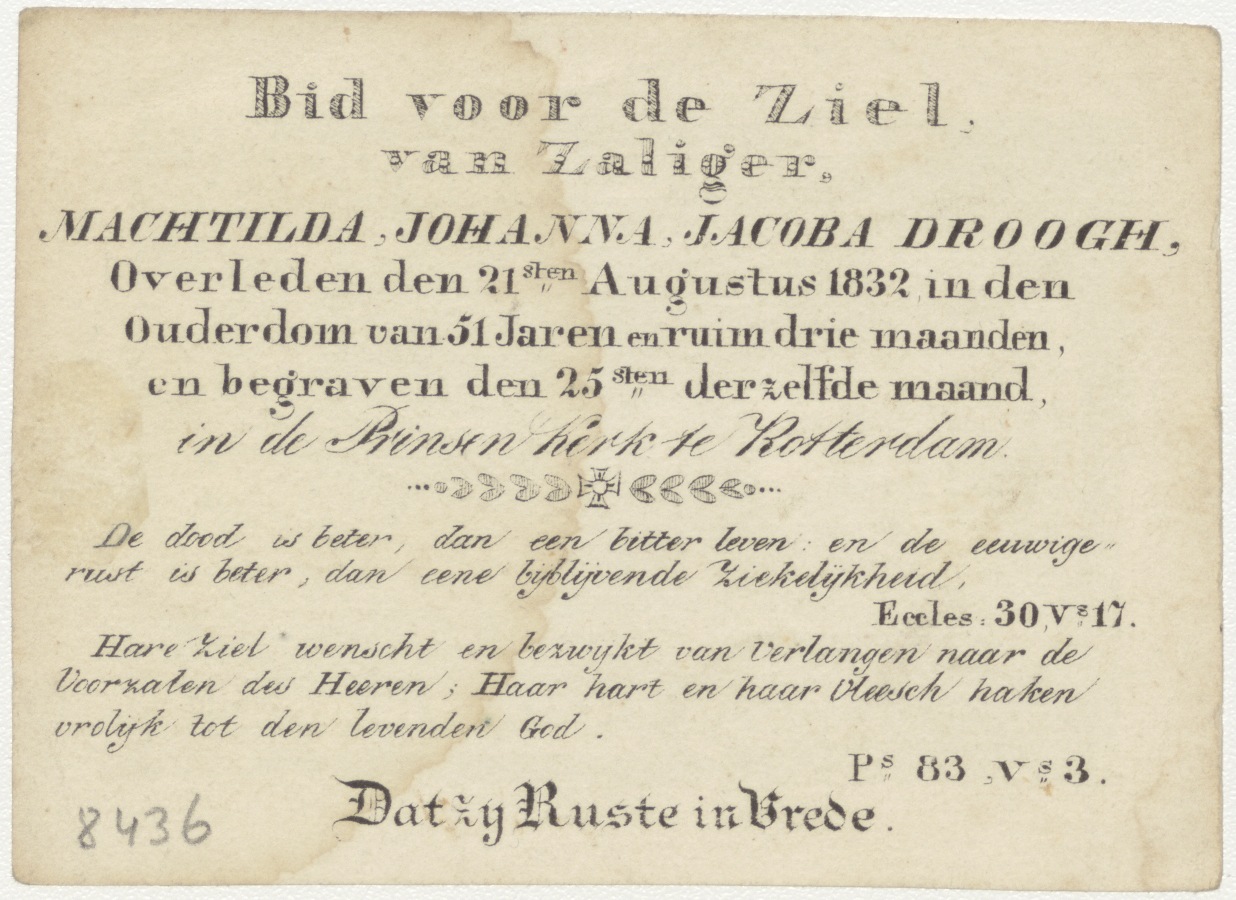 Bid voor de Ziel,
van Zaliger,
MACHTILDA, JOHANNA, JACOBA DROOGH,
Overleden den 21sten Augustus 1832, in den
Ouderdom van 51 Jaren en ruim drie maanden,
en begraven den 25sten derzelfde maand,
in de Prinsen Kerk te Rotterdam.
De dood is beter, dan een bitter leven: en de eeuwige
rust is beter, dan eene bijblijvende Ziekelijkheid,
Eccles: 30, Vs 17.
Hare Ziel wenscht en bezwijkt van Verlangen naar de
Voorzalen des Heeren; Haar hart en haar Vleesch haken
vrolijk tot den levenden God.
Ps 83, Vs 3.
Dat zy Ruste in Vrede.
8436